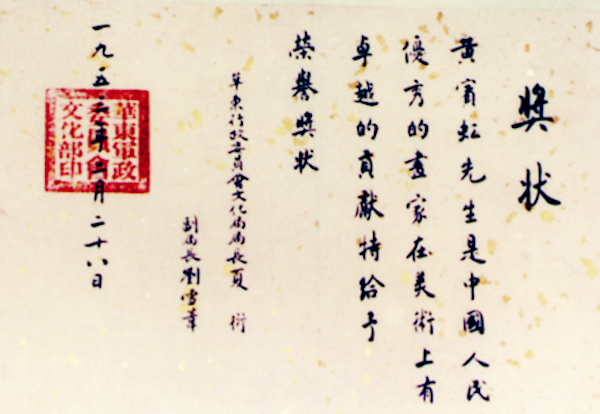 奬状
黄賓虹先生是中國人民
優秀的畫家在美術上有
卓越的貢獻特給予
榮譽奬状
華東行政委員會文化局局長夏衍
副局長劉雪葦
一九五三年二月二十八日
華東軍政
委員會
文化部印